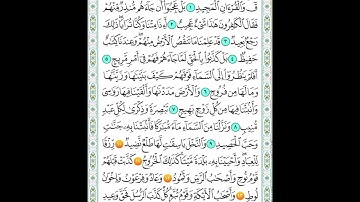 قٓ وَالْقُرْءَانِ الْمَجِيدِ ١ بَلْ عَجِبُوٓا أَن جَآءَهُم مُّنذِرٌ مِّنْهُمْ
فَقَالَ الْكَٰفِرُونَ هَٰذَا شَىْءٌ عَجِيبٌ ٢ أَءِذَا مِتْنَا وَكُنَّا تُرَابًا ذَٰلِكَ
رَجْعٌۢ بَعِيدٌ ٣ قَدْ عَلِمْنَا مَا تَنقُصُ الْأَرْضُ مِنْهُمْ وَعِندَنَا كِتَٰبٌ
حَفِيظٌۢ ٤ بَلْ كَذَّبُوا بِالْحَقِّ لَمَّا جَآءَهُمْ فَهُمْ فِىٓ أَمْرٍ مَّرِيجٍ ٥
أَفَلَمْ يَنظُرُوٓا إِلَى السَّمَآءِ فَوْقَهُمْ كَيْفَ بَنَيْنَٰهَا وَزَيَّنَّٰهَا
وَمَا لَهَا مِن فُرُوجٍ ٦ وَالْأَرْضَ مَدَدْنَٰهَا وَأَلْقَيْنَا فِيهَا رَوَٰسِىَ
وَأَنۢبَتْنَا فِيهَا مِن كُلِّ زَوْجٍۭ بَهِيجٍ ٧ تَبْصِرَةً وَذِكْرَىٰ لِكُلِّ عَبْدٍ
مُّنِيبٍ ٨ وَنَزَّلْنَا مِنَ السَّمَآءِ مَآءً مُّبَٰرَكًا فَأَنۢبَتْنَا بِهِۦ جَنَّٰتٍ
وَحَبَّ الْحَصِيدِ ٩ وَالنَّخْلَ بَاسِقَٰتٍ لَّهَا طَلْعٌ نَّضِيدٌ ١٠ رِّزْقًا
لِّلْعِبَادِ وَأَحْيَيْنَا بِهِۦ بَلْدَةً مَّيْتًا كَذَٰلِكَ الْخُرُوجُ ١١ كَذَّبَتْ قَبْلَهُمْ
قَوْمُ نُوحٍ وَأَصْحَٰبُ الرَّسِّ وَثَمُودُ ١٢ وَعَادٌ وَفِرْعَوْنُ وَإِخْوَٰنُ
لُوطٍ ١٣ وَأَصْحَٰبُ الْأَيْكَةِ وَقَوْمُ تُبَّعٍ كُلٌّ كَذَّبَ الرُّسُلَ فَحَقَّ وَعِيدِ